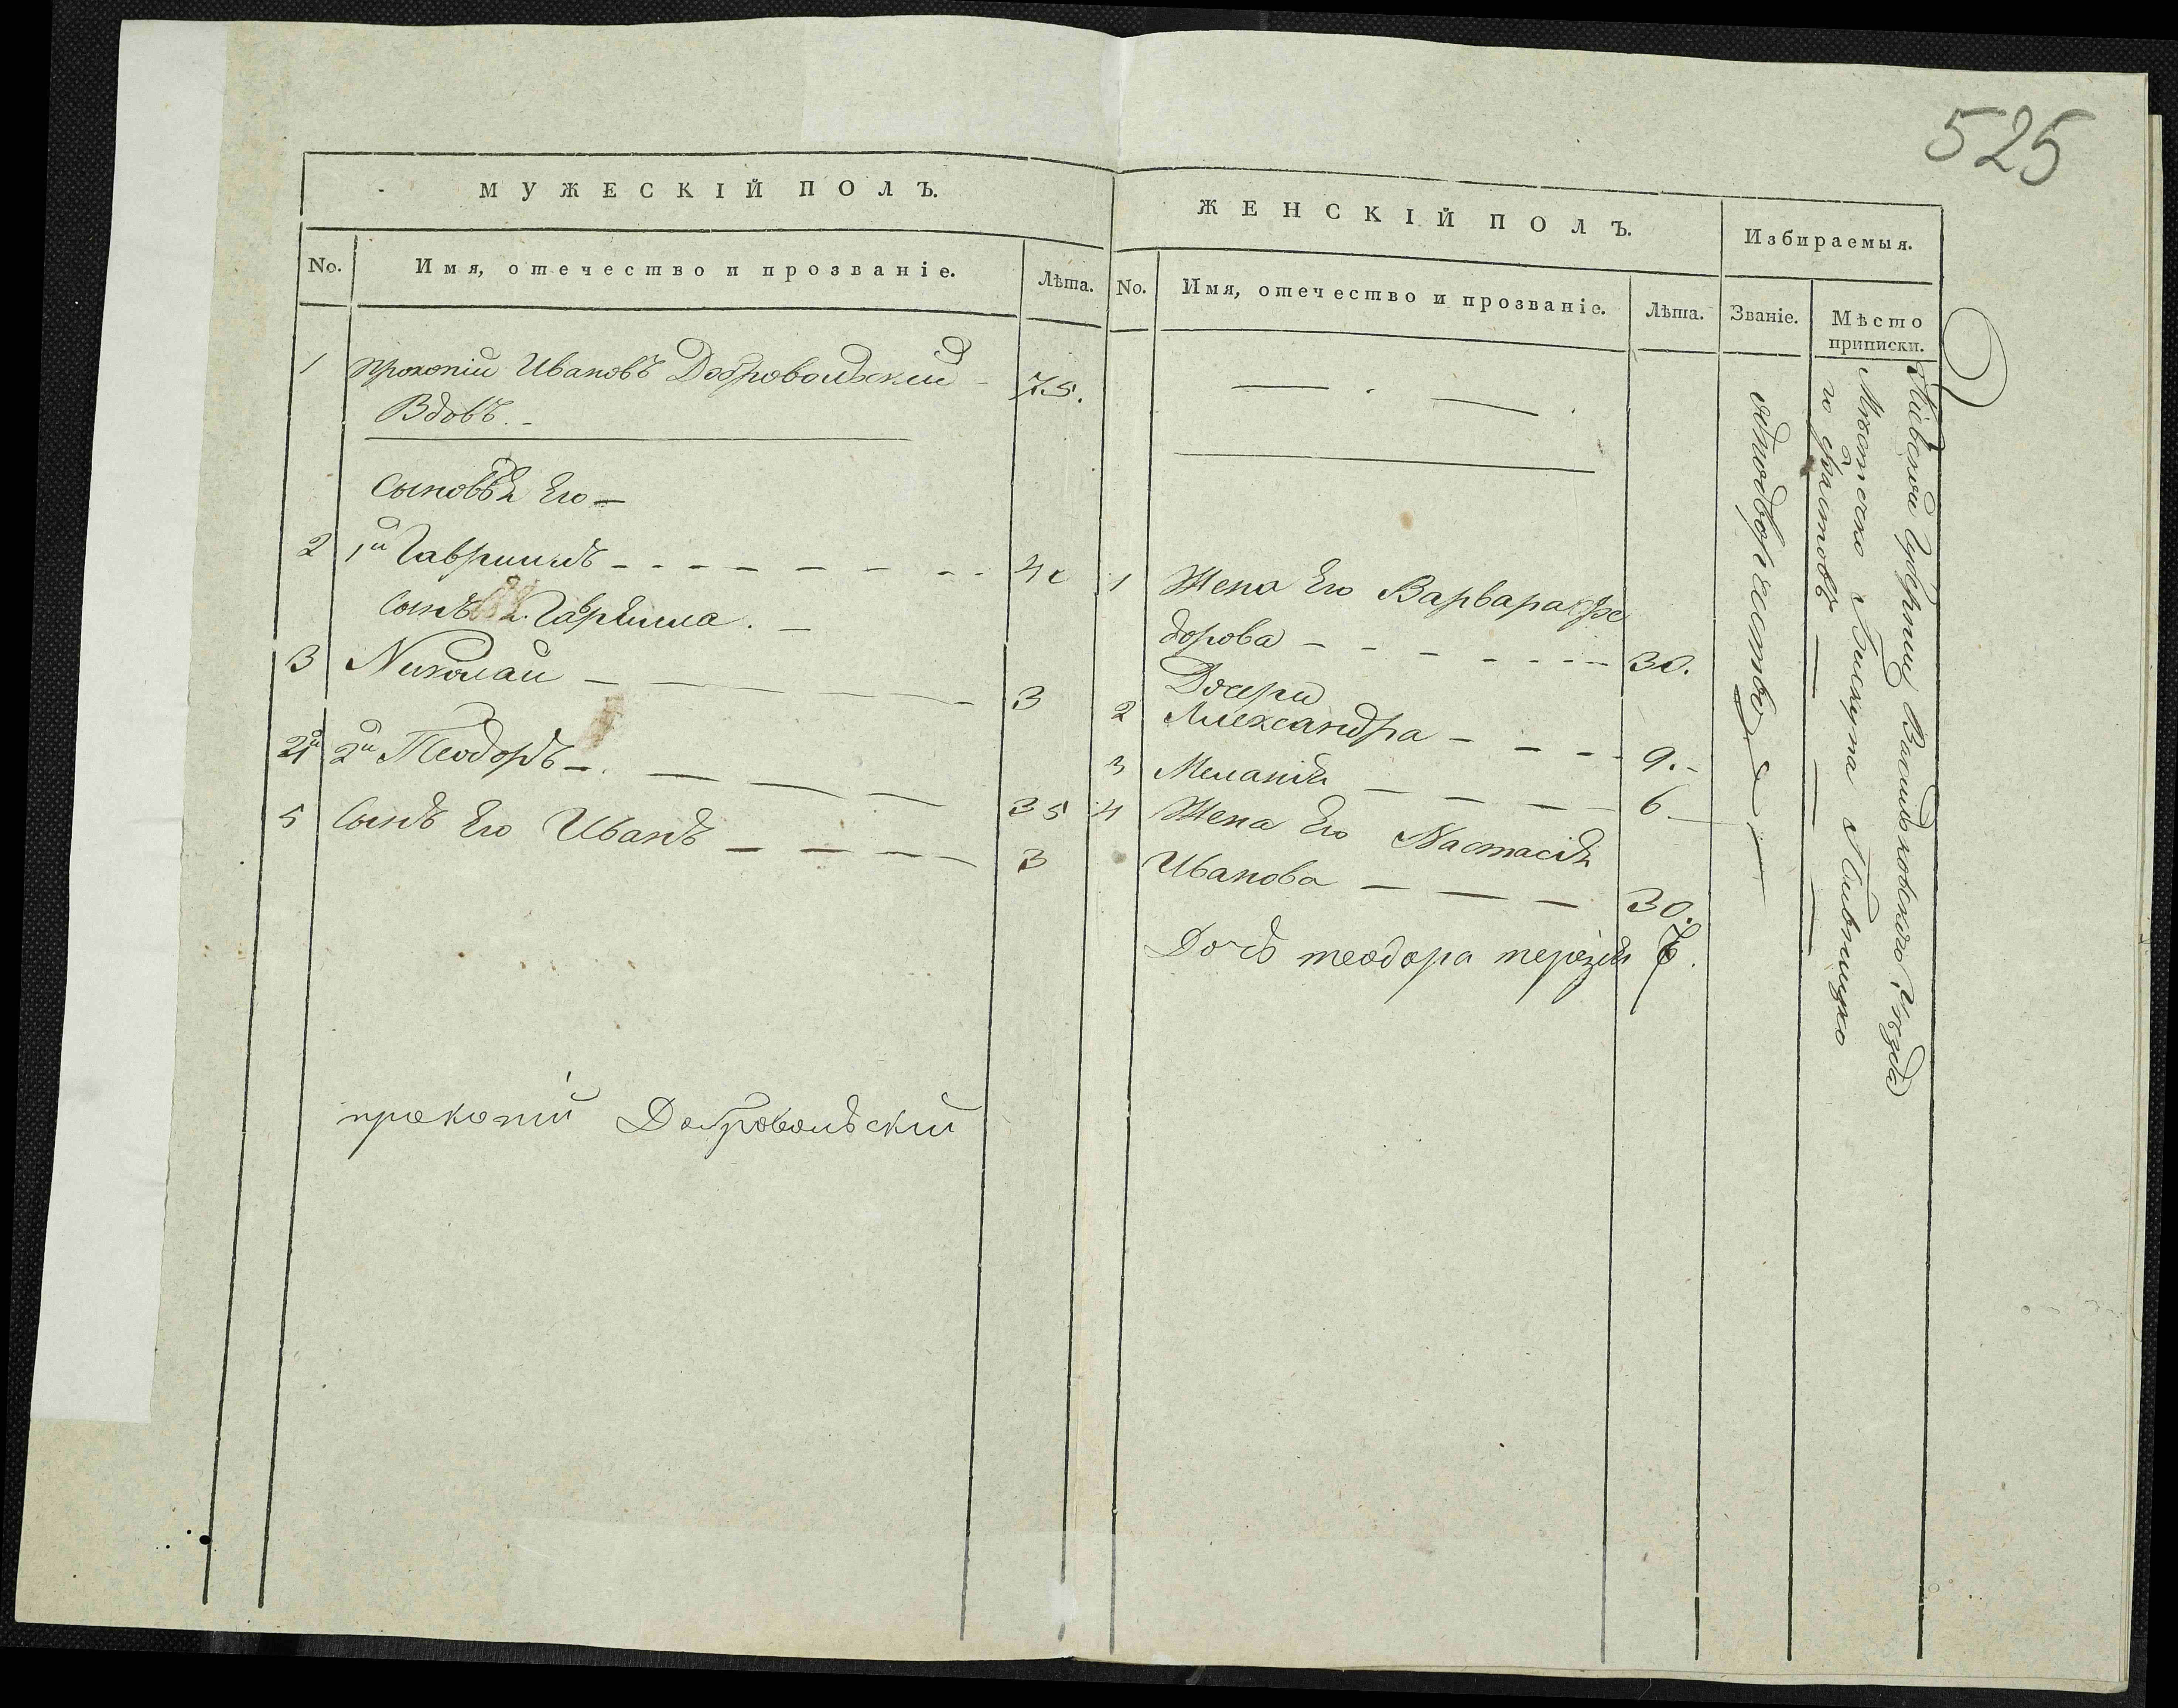 525
МУЖЕСКІЙ ПОЛЪ.
No. Имя, отечество и прозваніе. Лѣта.
1 Прокопій Ивановъ Добровольский - 75.
Вдовъ. -
Сыновья Его -
2 1й Гавриилъ - 40
Сынъ Гавриила. -
3 Николай - 3
4 2й Теодоръ - 35
5 Сынъ Его Иванъ - 3
прокопій Добровольский
ЖЕНСКІЙ ПОЛЪ.
No. Имя, отечество и прозваніе. Лѣта.
1 Жена Его Варвара Фе
дорова - 30.
Дочери
2 Александра - 9. -
3 Меланія - 6 -
4 Жена Его Настасія
Иванова - 30.
Дочь теодора терезія 7.
Избираемыя.
Званіе. Мѣсто
приписки.
однодворчество
Кіевской Губерніи Васильковского Уѣзда
Мѣстечко
го фастовъ